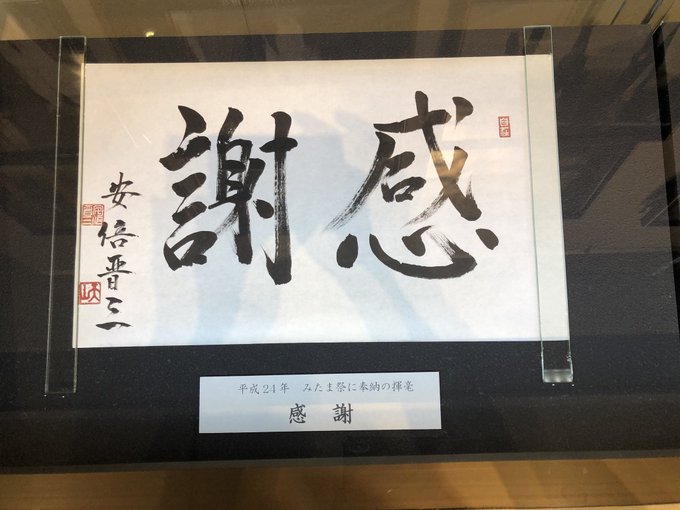 感謝
安倍晋三
平成24年 みたま祭に奉納の揮毫
感謝